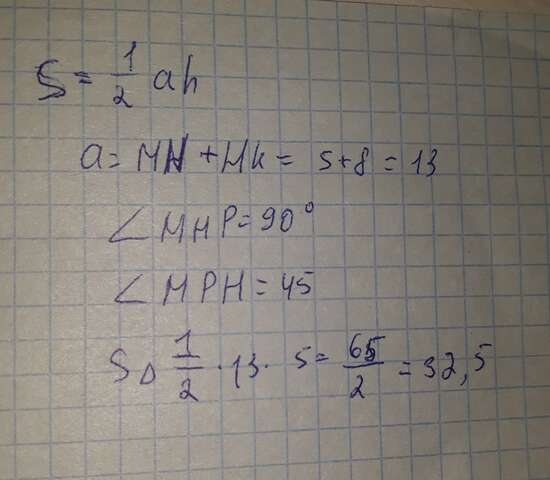 S = 1/2 ah
a = MH + HK = 5+8 = 13
∠MHP = 90°
∠MPH = 45
S△ 1/2 · 13 · 5 = 65/2 = 32,5